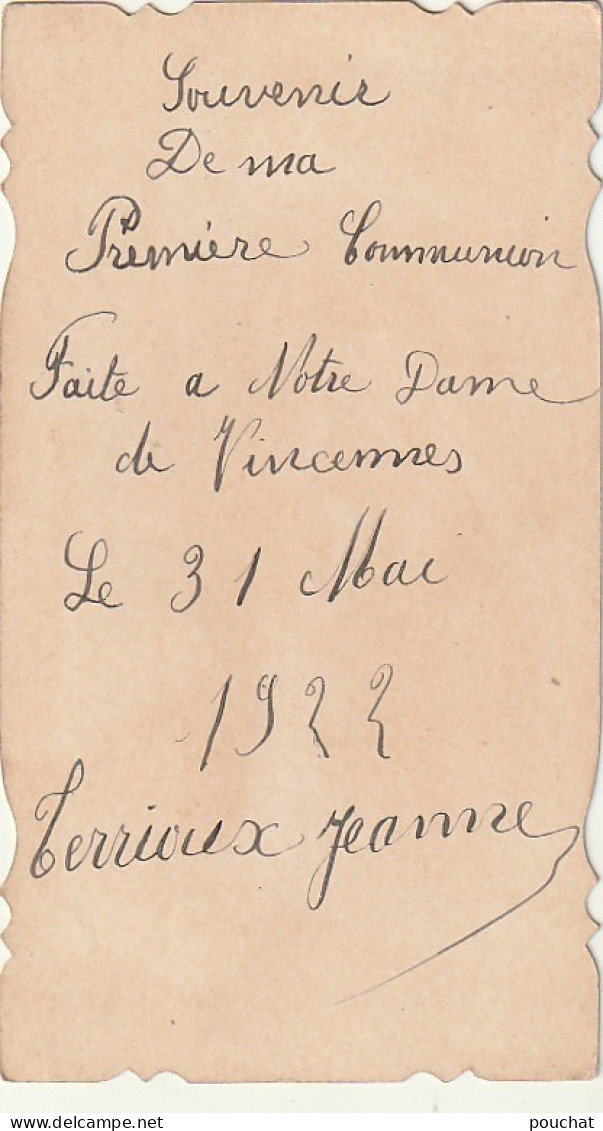 Souvenir
De ma
Première Communion
Faite a Notre Dame
de Vincennes
Le 31 Mai
1922
Terrioux Jeanne
pouchat